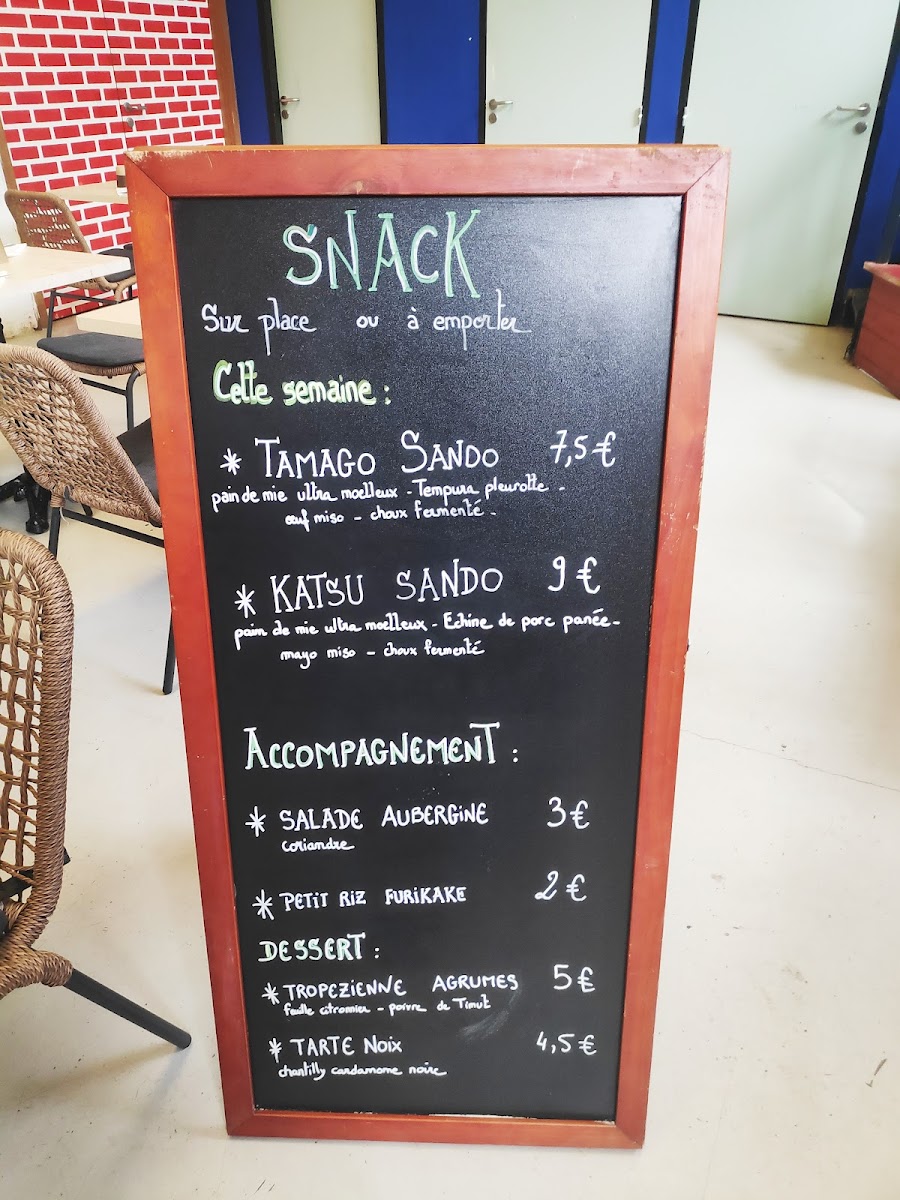 SNACK
Sur place ou à emporter
Cette semaine :
* TAMAGO SANDO 7,5 €
pain de mie ultra moelleux - Tempura pleurotte -
œuf miso - choux fermenté -
* KATSU SANDO 9 €
pain de mie ultra moelleux - Echine de porc panée -
mayo miso - choux fermenté
ACCOMPAGNEMENT :
* SALADE AUBERGINE 3 €
coriandre
* PETIT RIZ FURIKAKE 2 €
DESSERT :
* TROPEZIENNE AGRUMES 5 €
feuille citronnier - poivre de Timut
* TARTE Noix 4,5 €
chantilly cardamome noire